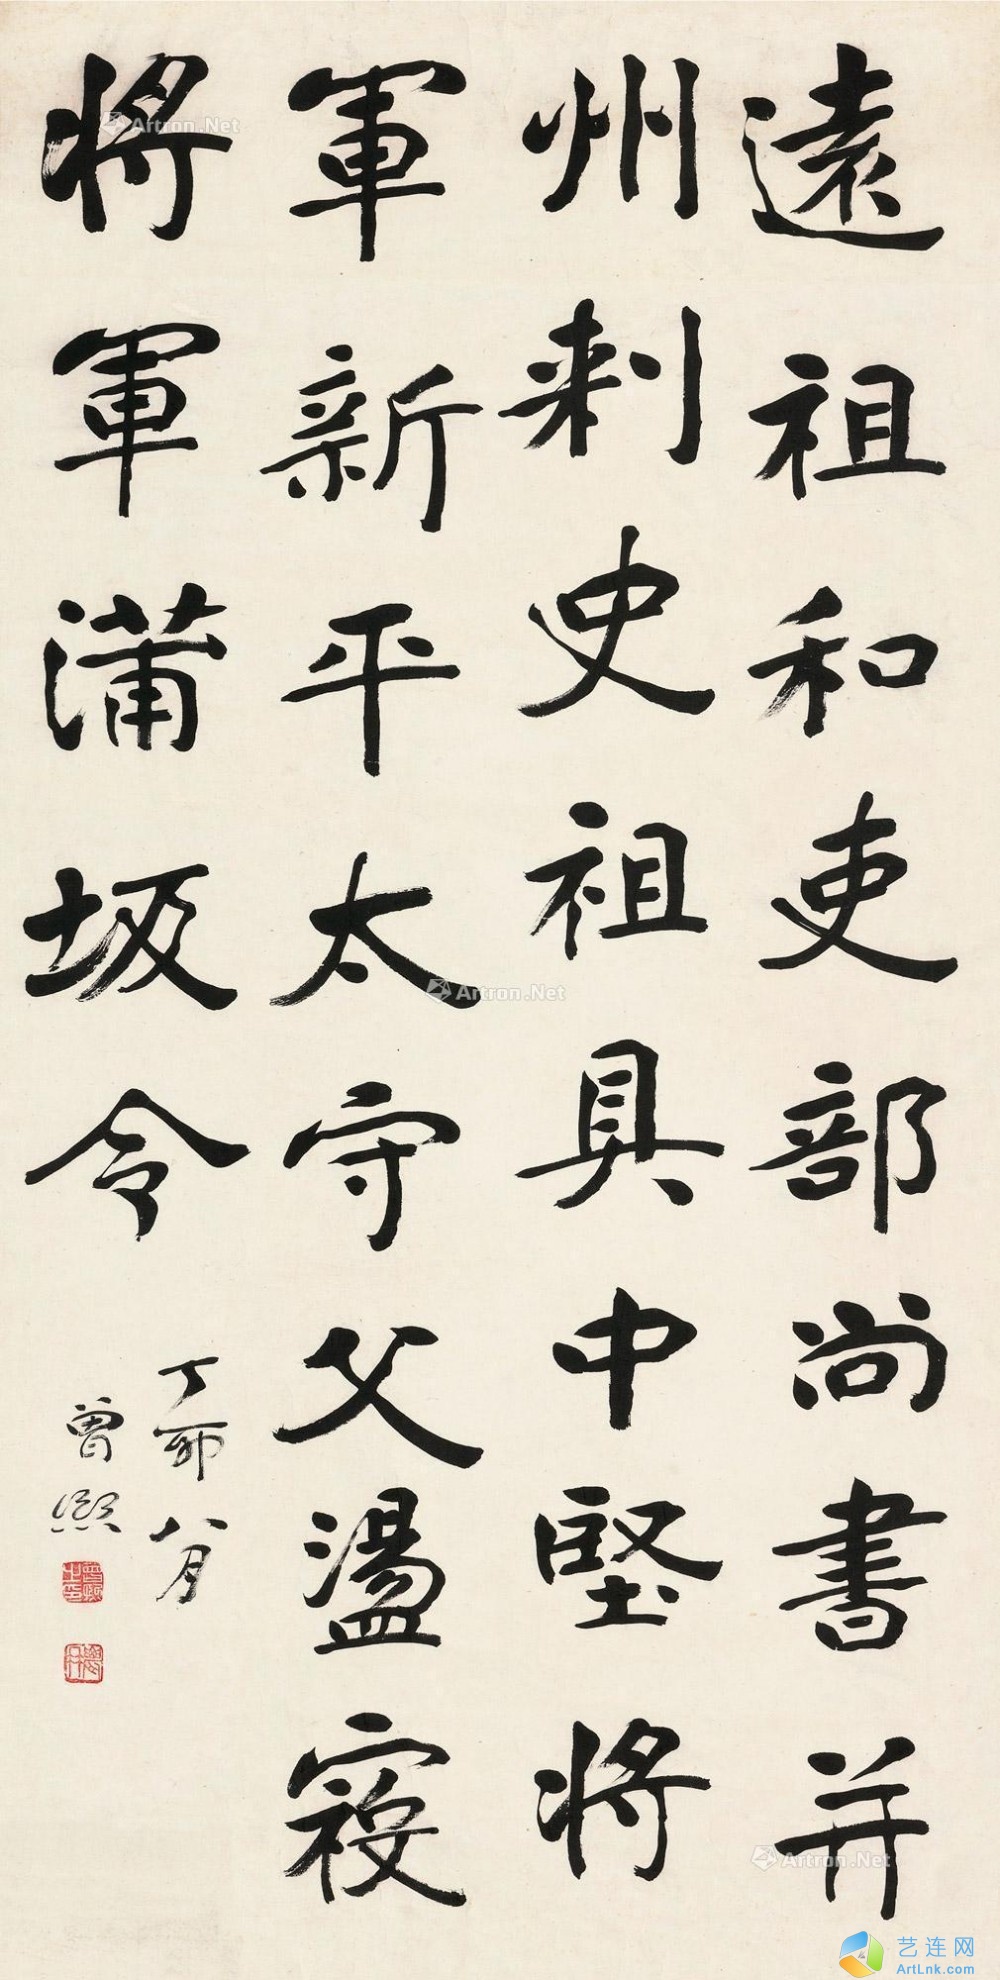 遠祖和吏部尚書并
州刺史祖具中堅將
軍新平太守父盪寇
將軍蒲坂令
丁卯八月
曾熙
曾熙之印
Artron.Net
Artron.Net
Artron.Net
艺连网
ArtLnk.com